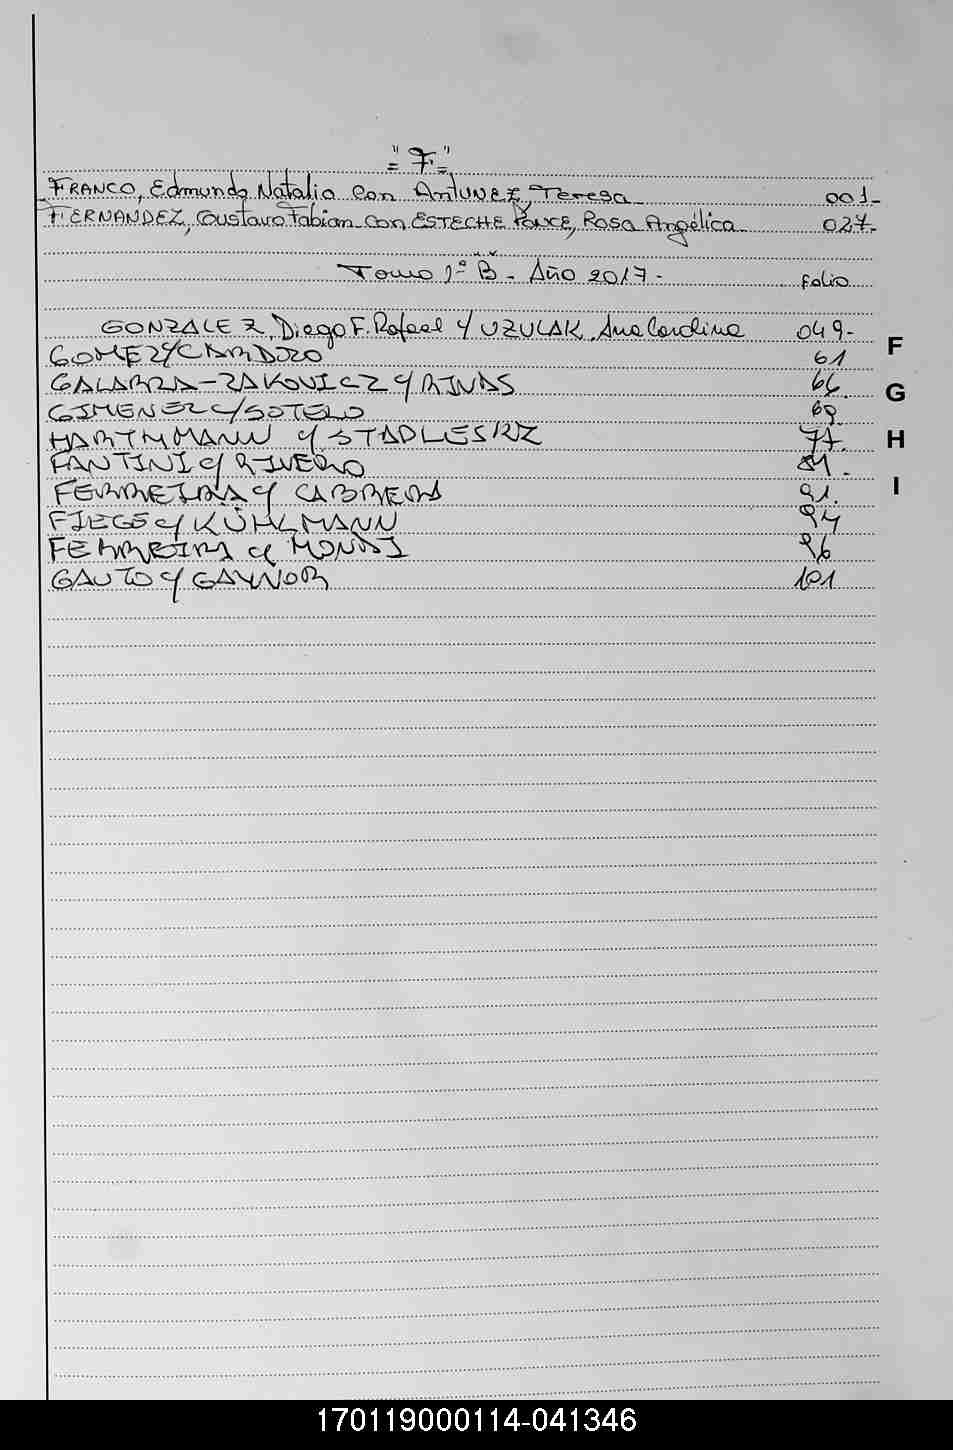 = "F" =
FRANCO, Edmundo Natalio con ANTUNEZ, Teresa 001-
FERNANDEZ, Gustavo Fabian con ESTECHE PONCE, Rosa Angélica 027-
Tomo 1º "B" - Año 2017 - Folio
GONZALEZ, Diego F. Rafael c/ UZULAK, Ana Carolina 049-
GOMEZ c/ CARDOZO 61
GALARZA-ZAKOVICZ c/ RIVAS 66.
GIMENEZ c/ SOTELO 69.
HARTHMANN c/ 77.
FANTINI c/ RIVERO 81.
FERREIRA c/ CABRERA 91.
FIEGE c/ KÜHLMANN 94
FERREIRA c/ 96
GAUTO c/ GAYNOR 101
F
G
H
I
170119000114-041346